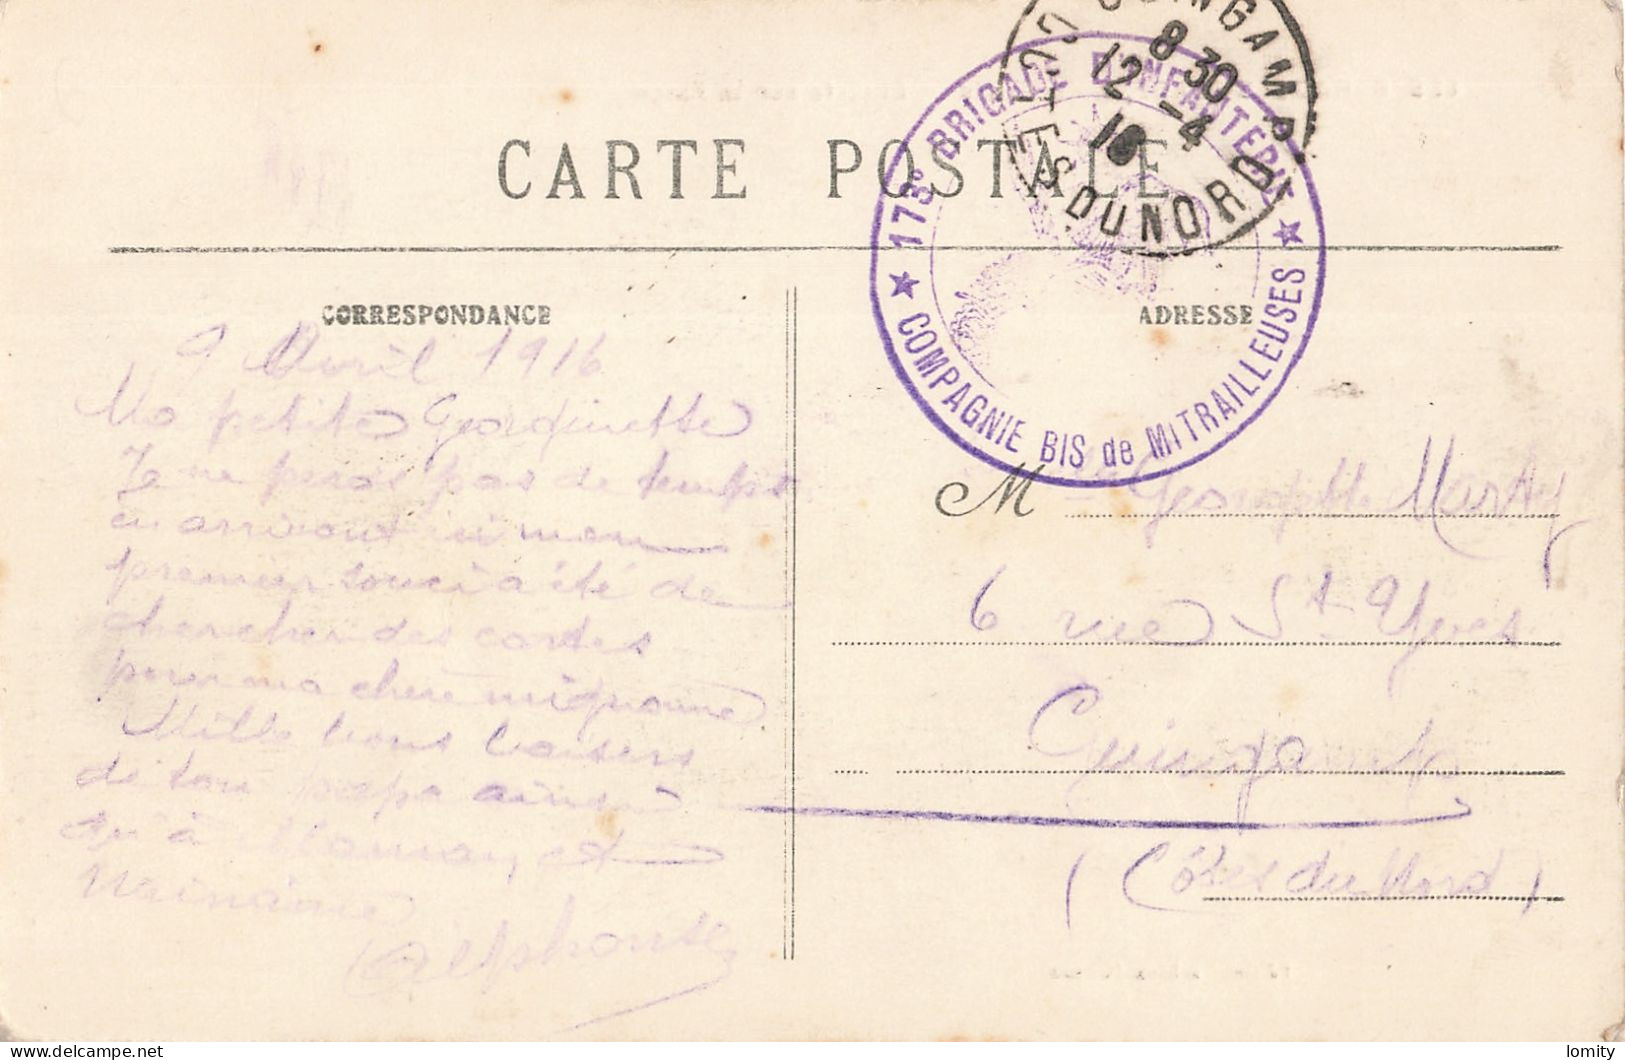 GUINGAMP
8 30
12 -4
16
COTES DU NORD
173e BRIGADE D'INFANTERIE
COMPAGNIE BIS de MITRAILLEUSES
CARTE POSTALE
CORRESPONDANCE
ADRESSE
9 Avril 1916
Ma petite Georginette
Je ne perds pas de temps
en arrivant ici mon
premier souci a été de
chercher des cartes
pour ma chère mignonne
Mille bons baisers
de ton papa ainsi
qu'à Maman et
Alphonse
M Georgette Marty
6 rue St Yves
Guingamp
(Côtes du Nord)
lomity